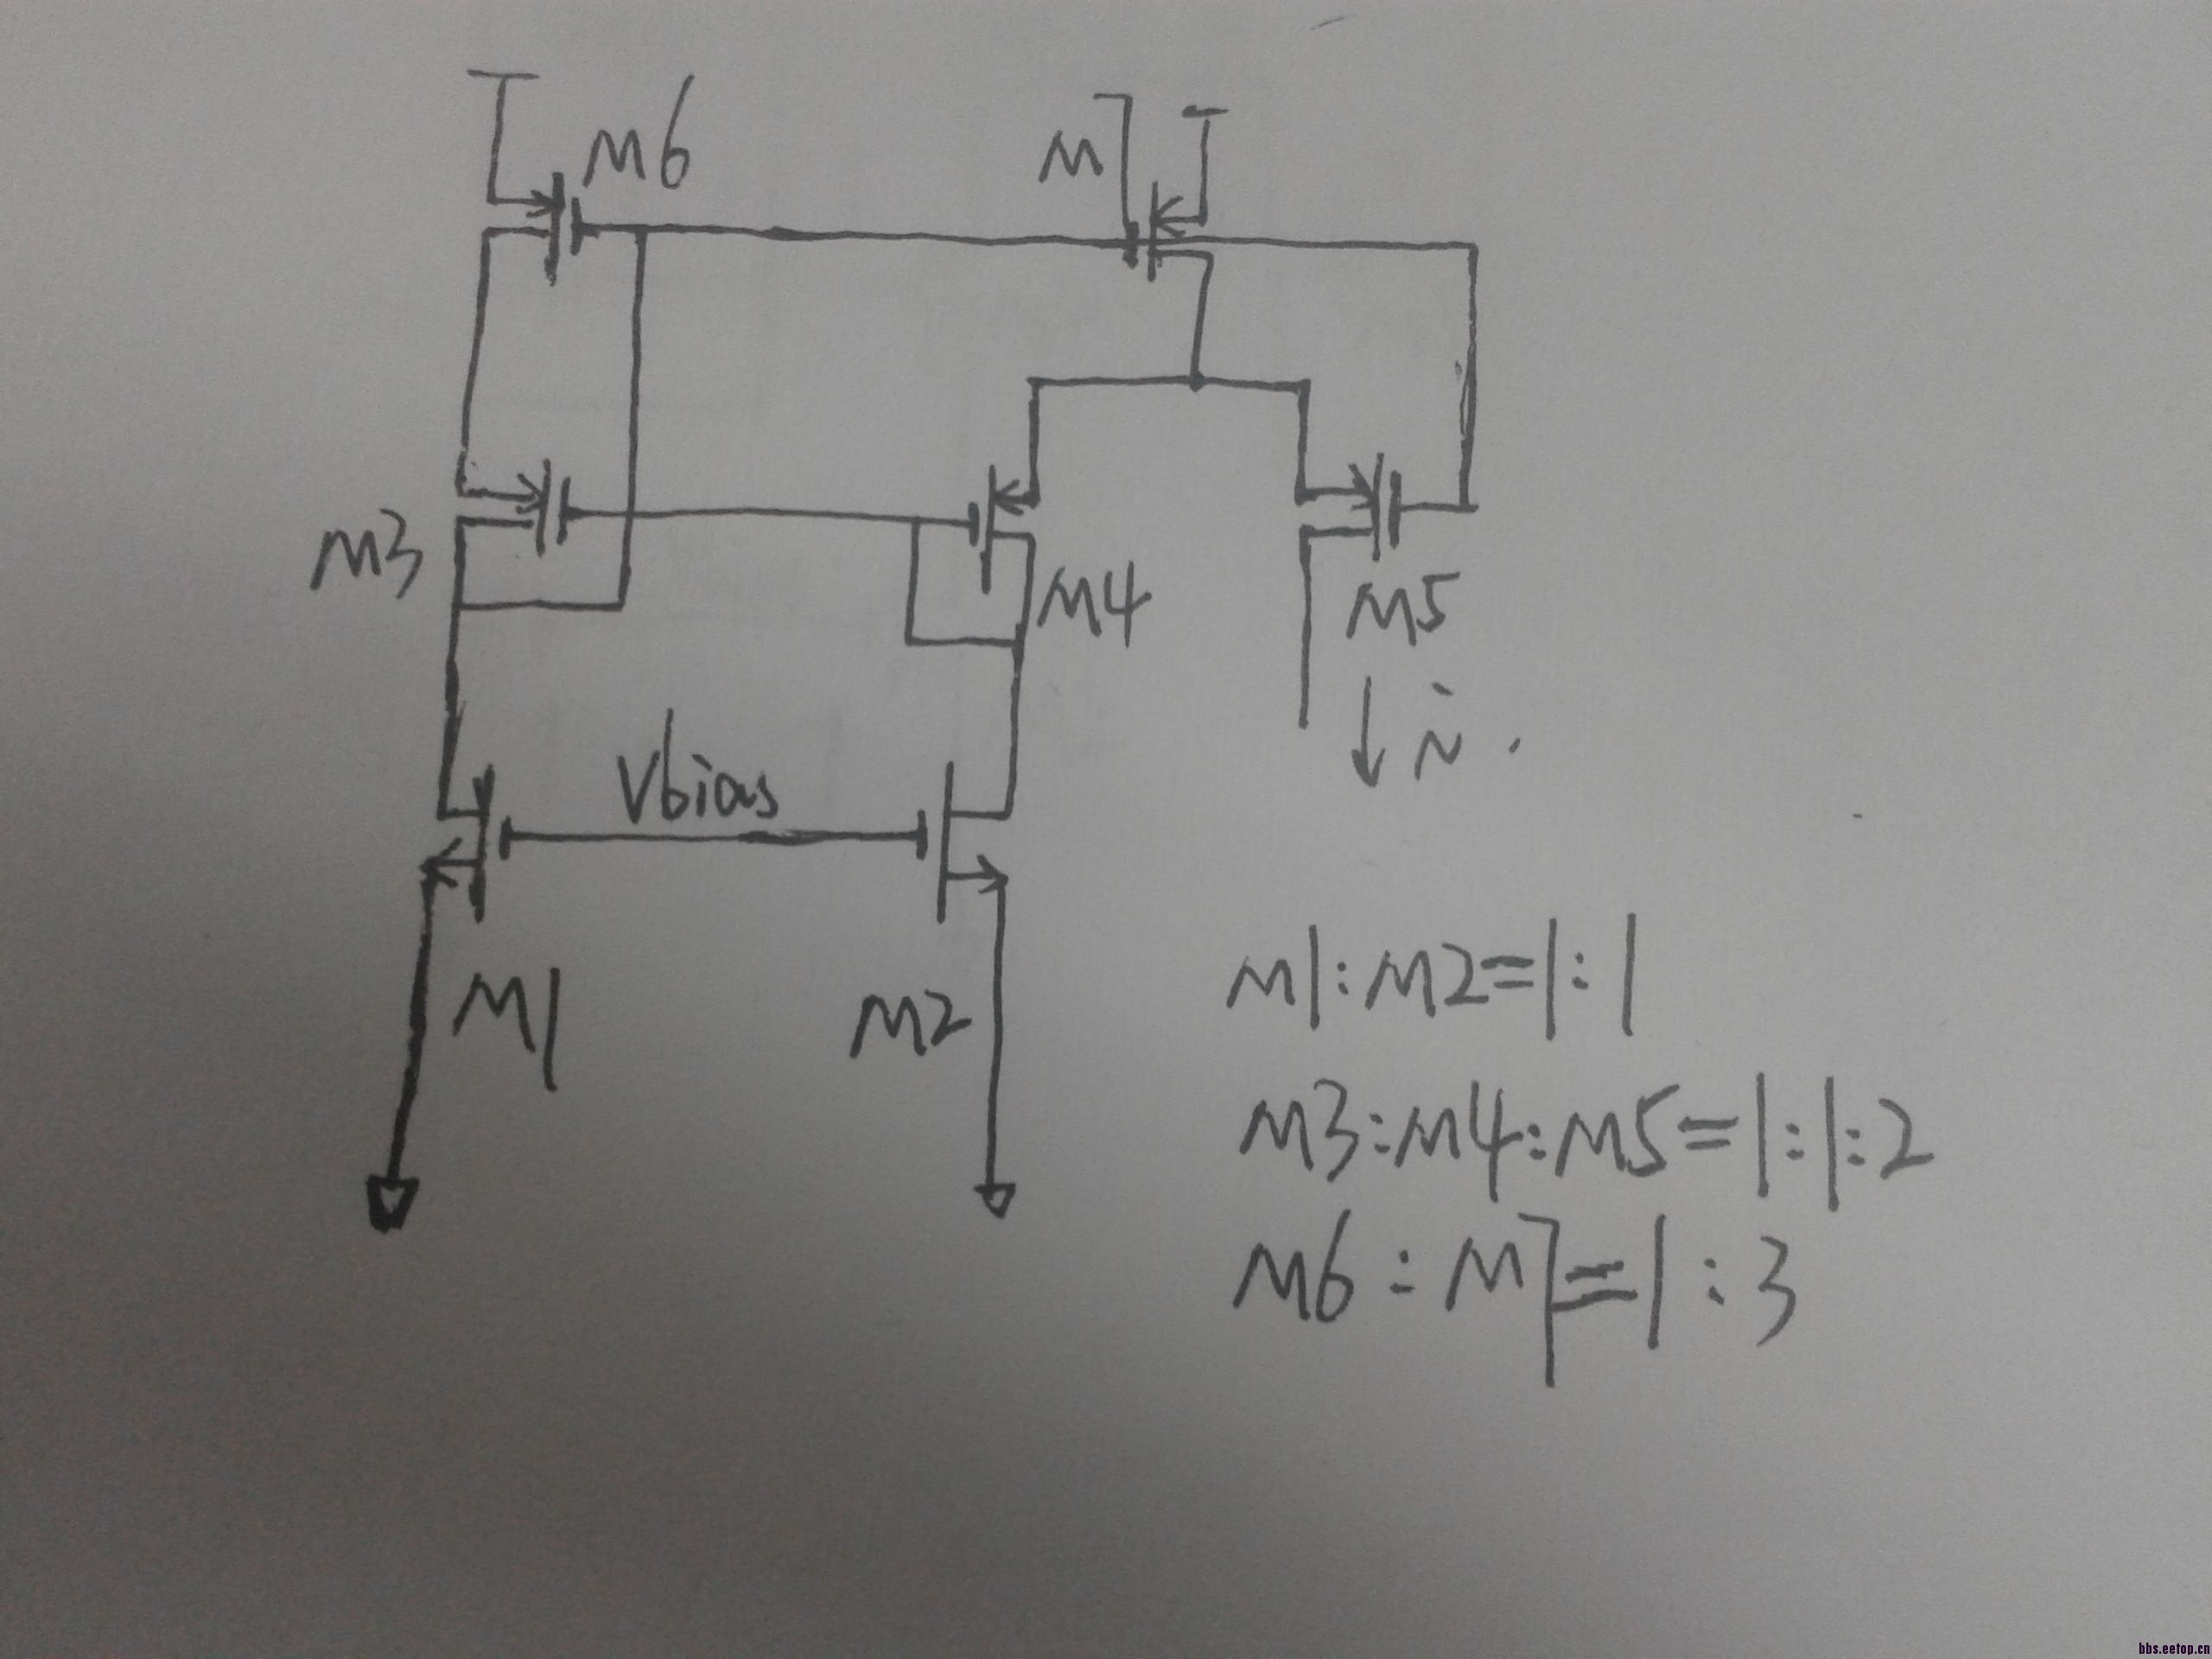 M6
M7
M3
M4
M5
i
Vbias
M1
M2
M1:M2=1:1
M3:M4:M5=1:1:2
M6:M7=1:3
bbs.eetop.cn